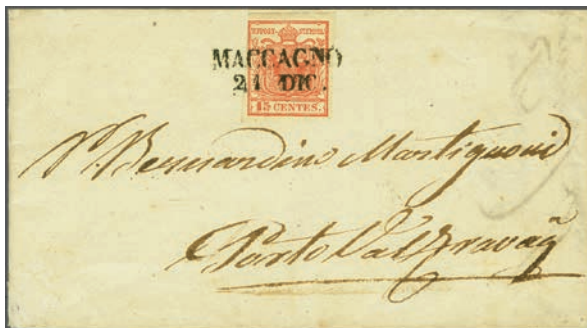 MACCAGNO
21 DIC.
15 CENTES.
Bernardino Martignoni
Porto Valtravag̃